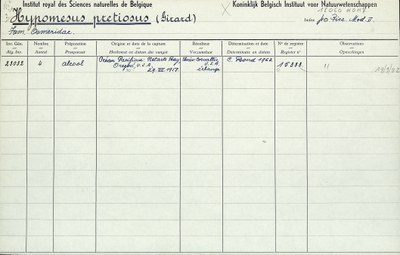 Institut royal des Sciences naturelles de Belgique
Koninklijk Belgisch Instituut voor Natuurwetenschappen
Hypomesus pretiosus (Girard)
Fam. Osmeridae.
Inv. Gén.
Alg. Inv.
Nombre
Aantal
Préparation
Preparaat
Origine et date de la capture
Herkomst en datum der vangst
Récolteur
Verzamelaar
Détermination et date
Determinatie en datum
N° de registre
Register n°
Observations
Opmerkingen
alcool
Océan Pacifique: Netarts Bay,
Oregon, U.S.A.
U.S.A.
échange
C. Bond